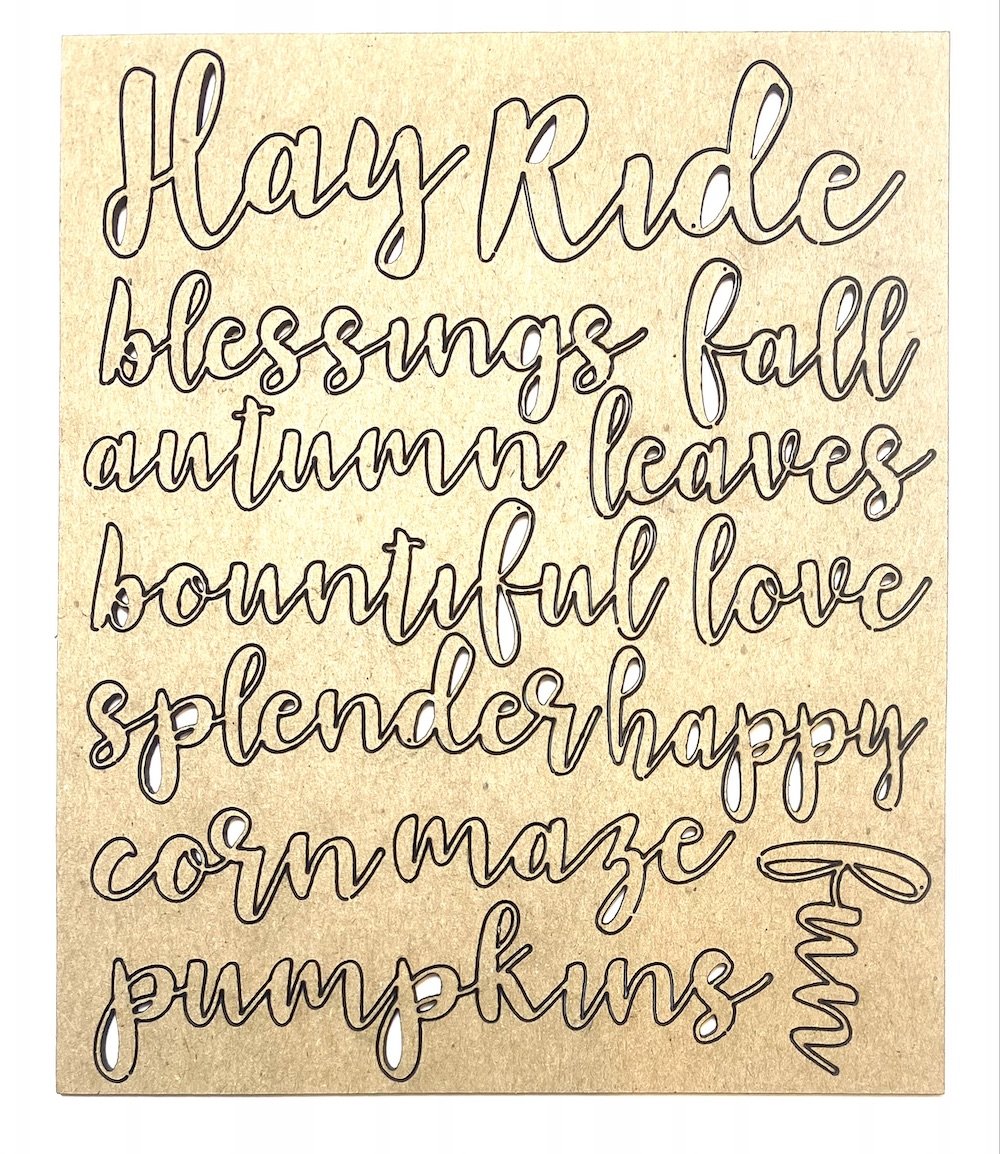 Hay Ride
blessings fall
autumn leaves
bountiful love
splender happy
corn maze
fun
pumpkins